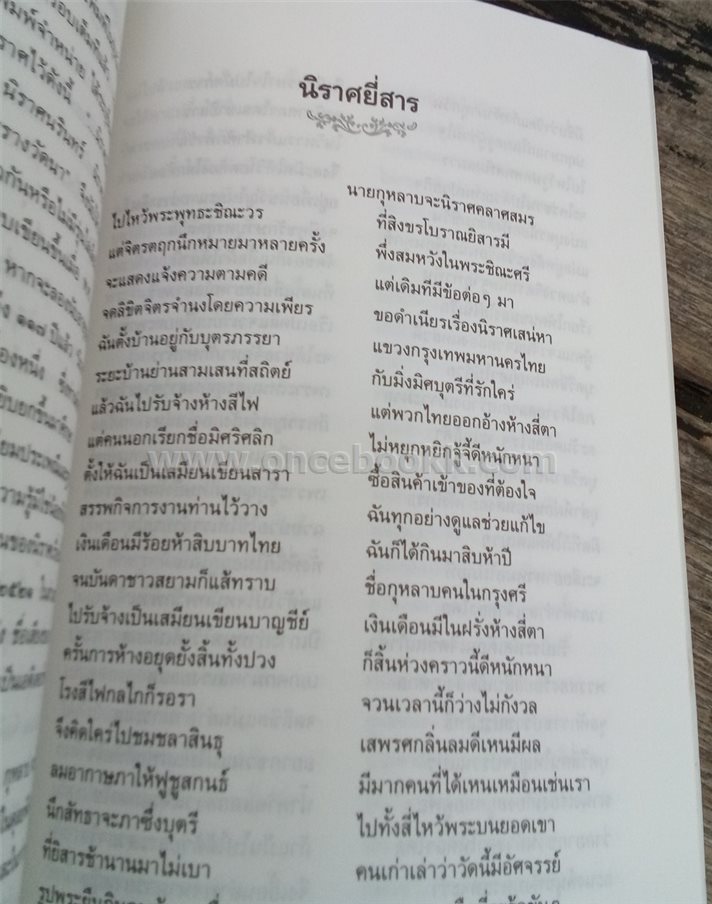 นิราศยี่สาร
นายกุหลาบจะนิราศคลาศสมร
ไปไหว้พระพุทธะชิณะวร ที่สิงขรโบราณยิสารมี
แต่จิตรตฤกนึกหมายมาหลายครั้ง พึ่งสมหวังในพระชิณะศรี
จะแสดงแจ้งความตามคดี แต่เดิมทีมีข้อต่อๆ มา
จดลิขิตจิตรจำนงโดยความเพียร ขอดำเนียรเรื่องนิราศเสน่หา
ฉันตั้งบ้านอยู่กับบุตรภรรยา แขวงกรุงเทพมหานครไทย
ระยะบ้านย่านสามเสนที่สถิตย์ กับมิ่งมิศบุตรีที่รักใคร่
แล้วฉันไปรับจ้างห้างสีไฟ แต่พวกไทยออกอ้างห้างสี่ตา
แต่คนนอกเรียกชื่อมิศริศลิก ไม่หยุกหยิกจู้จี้ดีหนักหนา
ตั้งให้ฉันเป็นเสมียนเขียนสารา ซื้อสินค้าเข้าของที่ต้องใจ
สรรพกิจการงานท่านไว้วาง ฉันทุกอย่างดูแลช่วยแก้ไข
เงินเดือนมีร้อยห้าสิบบาทไทย ฉันก็ได้กินมาสิบห้าปี
จนบันดาชาวสยามก็แส้ทราบ ชื่อกุหลาบคนในกรุงศรี
ไปรับจ้างเป็นเสมียนเขียนบาญชีย์ เงินเดือนมีในฝรั่งห้างสี่ตา
ครั้นการห้างอยุดยั้งสิ้นทั้งปวง ก็สิ้นห่วงคราวนี้ดีหนักหนา
โรงสีไฟกลไกก็รอรา จวนเวลานี้ก็ว่างไม่กังวล
จึงคิดใคร่ไปชมชลาสินธุ เสพรศกลิ่นลมดีเหนมีผล
ลมอากาษภาให้ฟูชูสกนธ์ มีมากคนที่ได้เหนเหมือนเช่นเรา
นึกสัทธาจะภาซึ่งบุตรี ไปทั้งสี่ไหว้พระบนยอดเขา
ที่ยิสารช้านานมาไม่เบา คนเก่าเล่าว่าวัดนี้มีอัศจรรย์
www.oncebookk.com